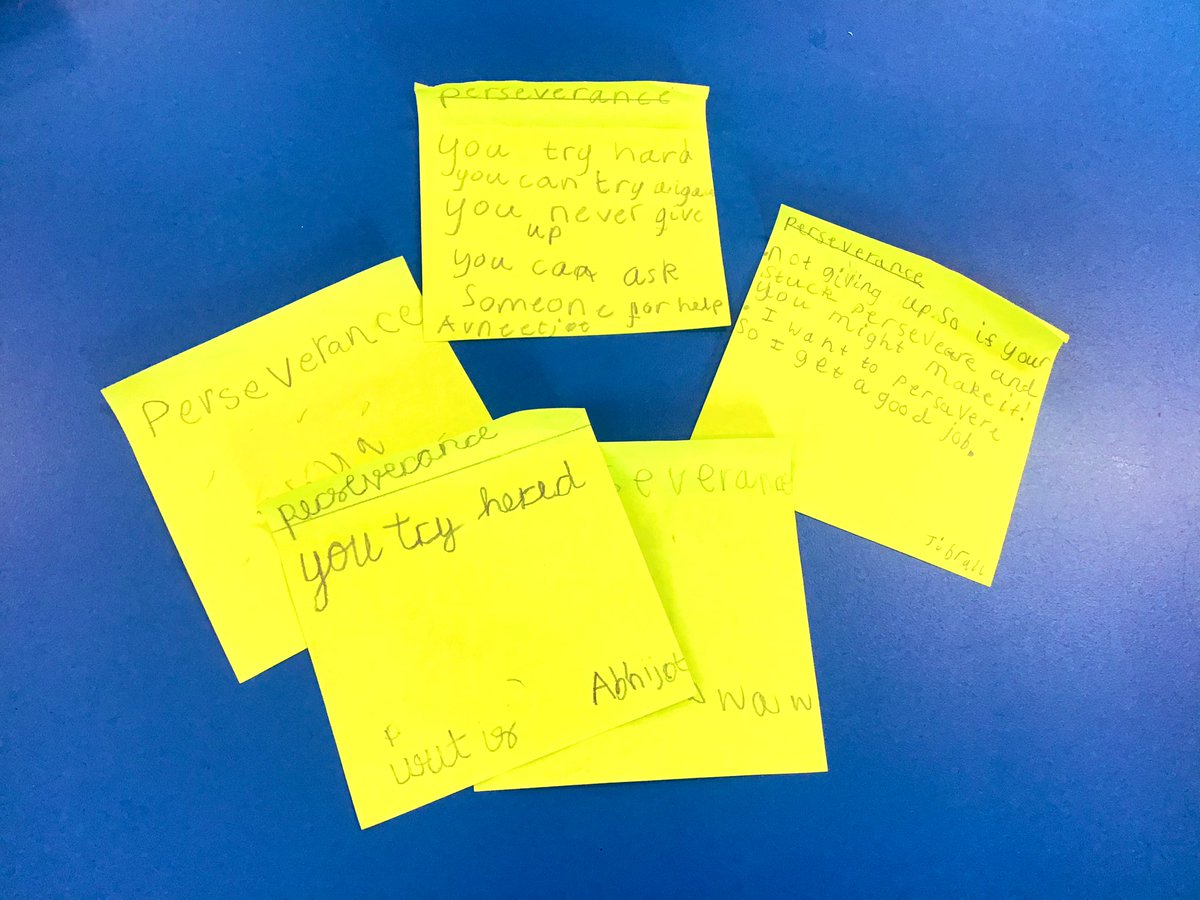 perseverance
you try hard
you can try
you never give
up
you can ask
Someone for help
Avneetjot
perseverance
·Not giving up. So if your
stuck persevere and
you might make it!
· I want to persavere
so I get a good job.
Jibrail
Perseverance
perseverance
you try hered
Abhijot
severance
wan